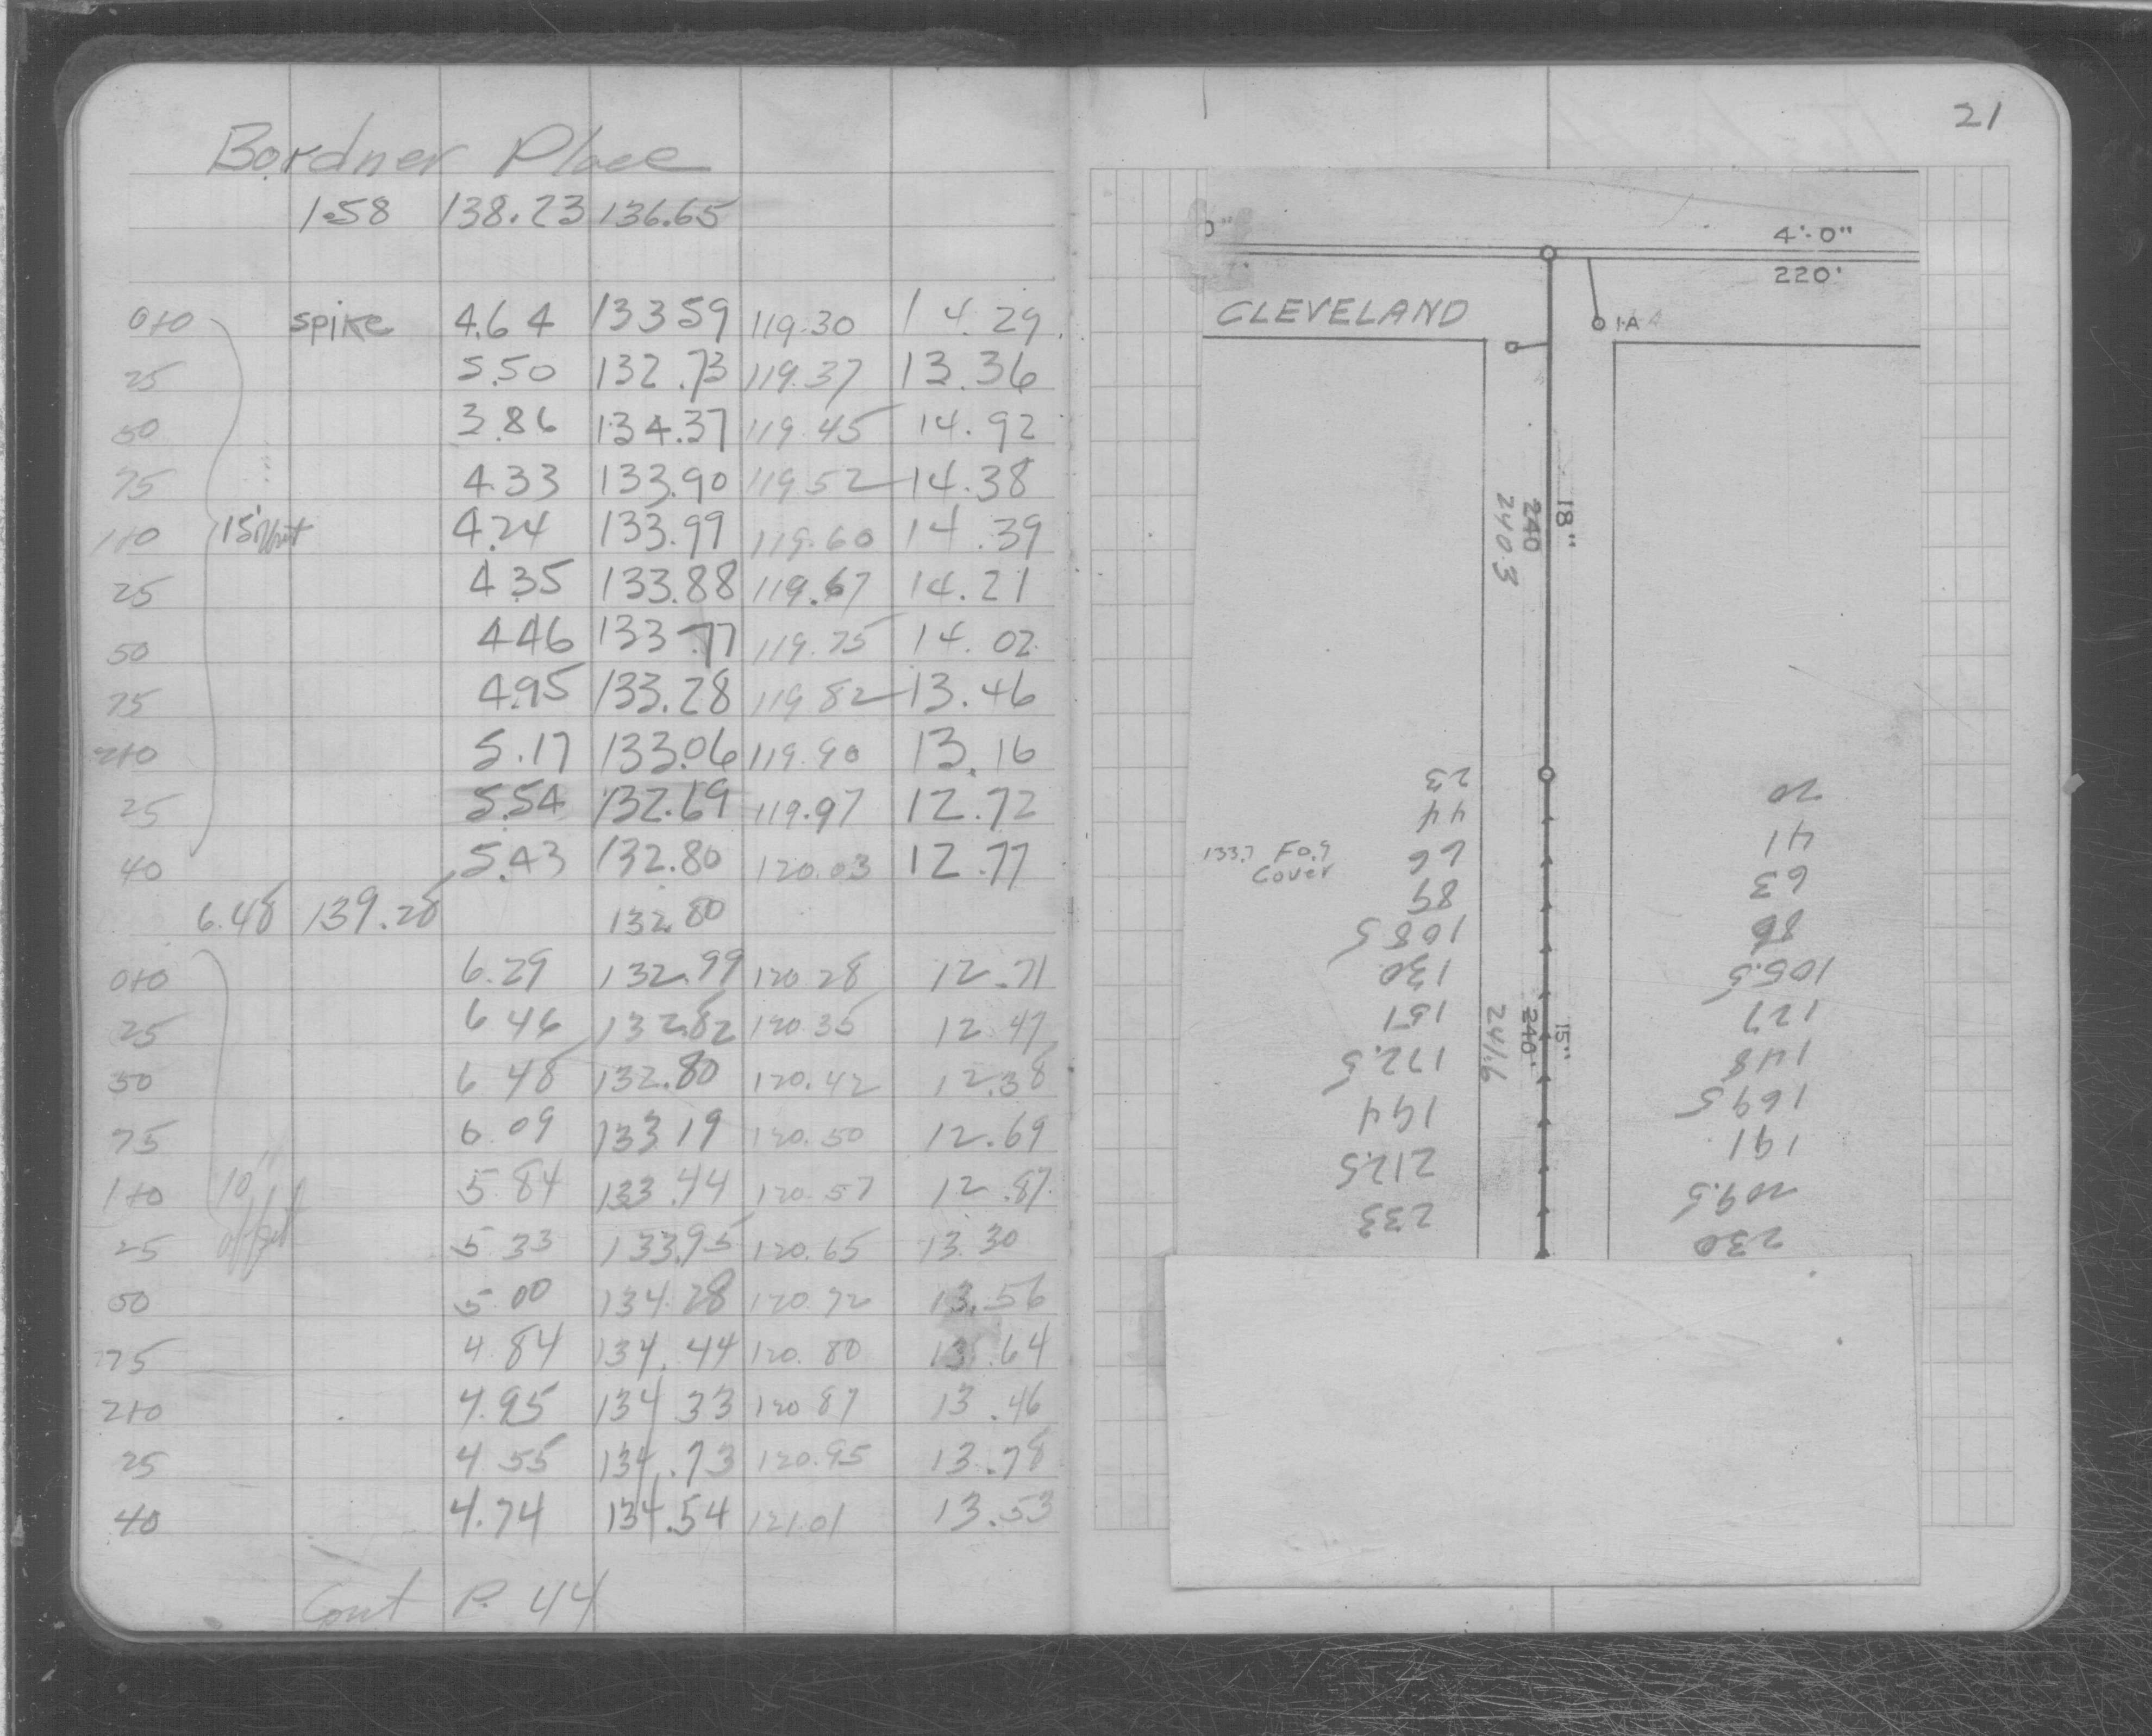 Bordner Place
1.58 138.23 136.65
0+0 spike 4.64 133.59 119.30 14.29
25 5.50 132.73 119.37 13.36
50 3.86 134.37 119.45 14.92
75 4.33 133.90 119.52 14.38
1+0 15' 4.24 133.99 119.60 14.39
25 4.35 133.88 119.67 14.21
50 4.46 133.77 119.75 14.02
75 4.95 133.28 119.82 13.46
2+0 5.17 133.06 119.90 13.16
25 5.54 132.69 119.97 12.72
40 5.43 132.80 120.03 12.77
6.48 139.28 132.80
0+0 6.29 132.99 120.28 12.71
25 6.46 132.82 120.35 12.47
50 6.48 132.80 120.42 12.38
75 6.09 133.19 120.50 12.69
1+0 10' 5.84 133.44 120.57 12.87
offset
25 5.33 133.95 120.65 13.30
50 5.00 134.28 120.72 13.56
75 4.84 134.44 120.80 13.64
2+0 4.95 134.33 120.87 13.46
25 4.55 134.73 120.95 13.78
40 4.74 134.54 121.01 13.53
Cont P. 44
21
4'-0"
220'
CLEVELAND
1-A
18"
240
240.3
23 20
44 41
133.7 Fo.9 66 63
Cover
89 86
108.5 105.5
130 127
151 148
15"
240'
241.6
172.5 169.5
194 191
212.5 209.5
233 230